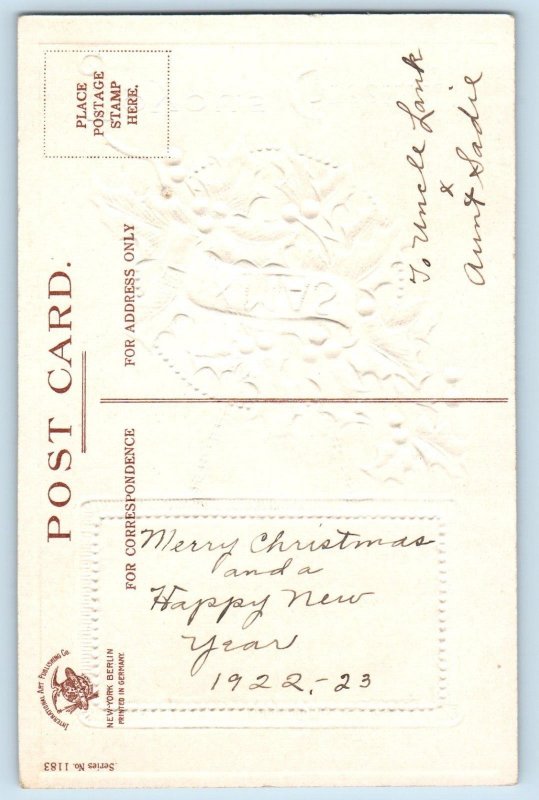 POST CARD.
PLACE
POSTAGE
STAMP
HERE.
FOR ADDRESS ONLY
To Uncle Lank
&
Aunt Sadie
FOR CORRESPONDENCE
Merry Christmas
and a
Happy New
Year
1922-23
INTERNATIONAL ART PUBLISHING CO.
NEW-YORK BERLIN
PRINTED IN GERMANY.
Series No. 1183